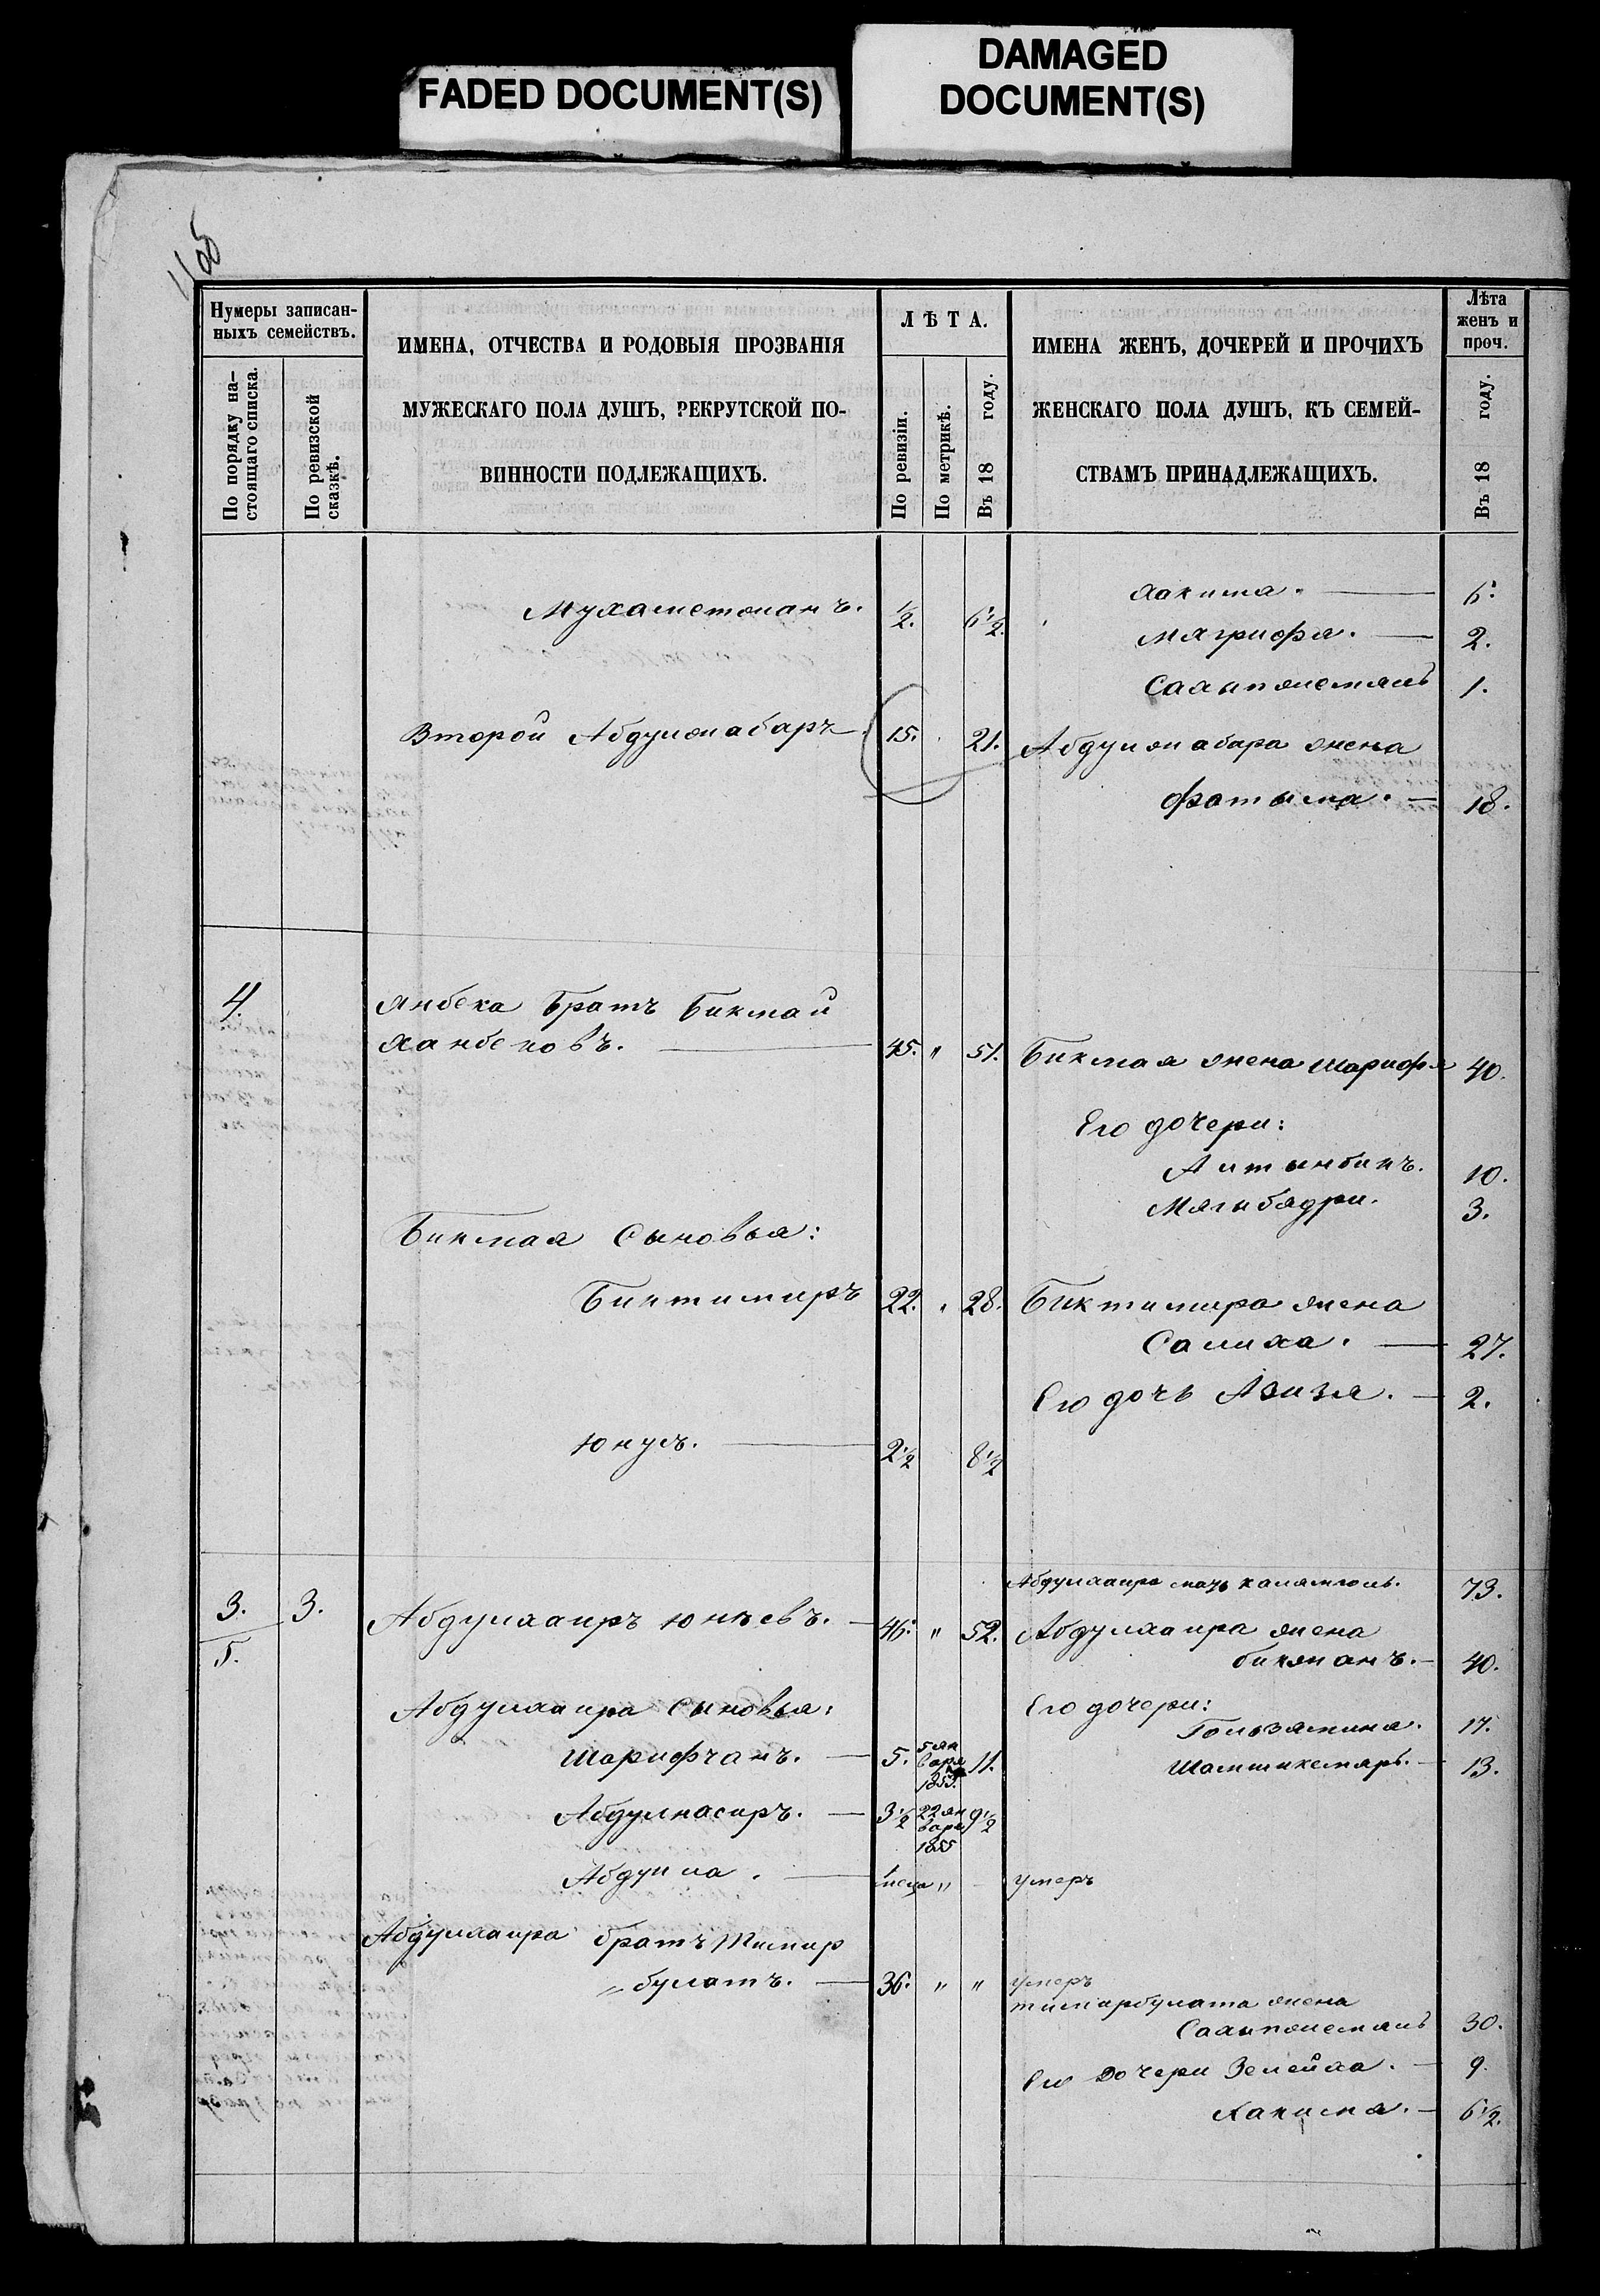 FADED DOCUMENT(S)
DAMAGED
DOCUMENT(S)
Нумеры записан-
ныхъ семействъ.
По порядку на-
стоящаго списка.
По ревизской
сказкѣ.
ИМЕНА, ОТЧЕСТВА И РОДОВЫЯ ПРОЗВАНІЯ
МУЖЕСКАГО ПОЛА ДУШЪ, РЕКРУТСКОЙ ПО-
ВИННОСТИ ПОДЛЕЖАЩИХЪ.
ЛѢТА.
По ревизіи.
По метрикѣ.
Въ 18 году.
ИМЕНА ЖЕНЪ, ДОЧЕРЕЙ И ПРОЧИХЪ
ЖЕНСКАГО ПОЛА ДУШЪ, КЪ СЕМЕЙ-
СТВАМЪ ПРИНАДЛЕЖАЩИХЪ.
Лѣта
женъ и
проч.
Въ 18 году.
Хакима. 6.
Мухаметжанъ. 1/2. 6 1/2.
Мягрифя. 2.
1.
Второй Абдулжабаръ 15. 21. Абдулжабара жена
Фатыма. 18.
4. Янбека братъ Бикмай
Ханбековъ. 45. " 51. Бикмая жена Шарифя 40.
Его дочери:
Алтынбикъ. 10.
Мягибадри. 3.
Бикмая сыновья:
Биктимиръ 22. " 28. Биктимира жена
Салиха. 27.
Его дочь Азизя. 2.
Юнусъ. 2 1/2 8 1/2
Абдулхаира мать 73.
3. 3. Абдулхаиръ Юнѣевъ. 46. " 52. Абдулхаира жена
5. бикжанъ. 40.
Абдулхаира сыновья: Его дочери:
Гользямина. 17.
Шарифчанъ. 5. 5 ян
варя
1853. 11. Шамшикемаръ. 13.
Абдулнасиръ. 3 1/2 22 ян
варя
1855 9 1/2
Абдулла. " умеръ
Абдулхаира братъ Тимир
булатъ. 36. " " умеръ
тимирбулата жена
30.
Его дочери Зелейха. 9.
Хакима. 6 1/2.